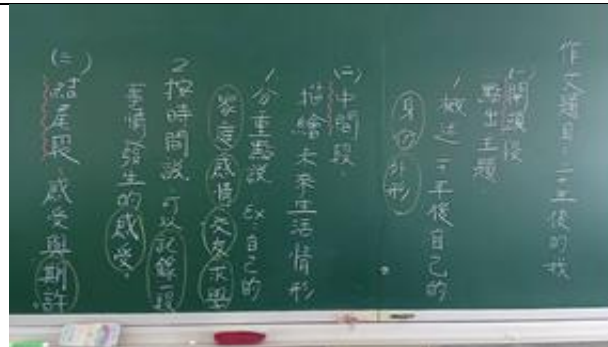 作文題目:二十年後的我
(一)開頭段
點出主題
1.概述二十年後自己的
身份外形
(二)中間段.
描繪未來生活情形
1.分重點說 Ex.自己的
家庭感情交友
2.按時間說.可以記錄一段
事情發生的感受.
結尾段.感受與期許.